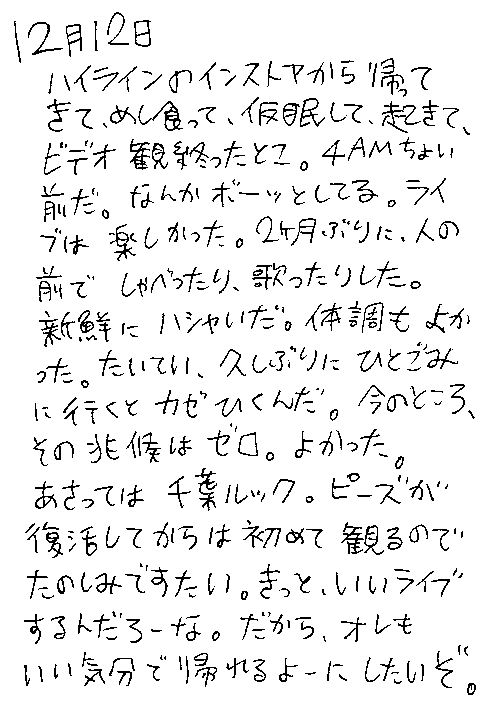 12月12日
ハイラインのインストアから帰って
きて、めし食って、仮眠して、起きて、
ビデオ観終ったとこ。4AMちょい
前だ。なんかボーッとしてる。ライ
ブは楽しかった。2ヶ月ぶりに、人の
前でしゃべったり、歌ったりした。
新鮮にハシャいだ。体調もよか
った。たいてい、久しぶりにひとごみ
に行くとカゼひくんだ。今のところ、
その兆候はゼロ。よかった。
あさっては千葉ルック。ピーズが
復活してからは初めて観るので
たのしみですたい。きっと、いいライブ
するんだろーな。だから、オレも
いい気分で帰れるよーにしたいぞ。